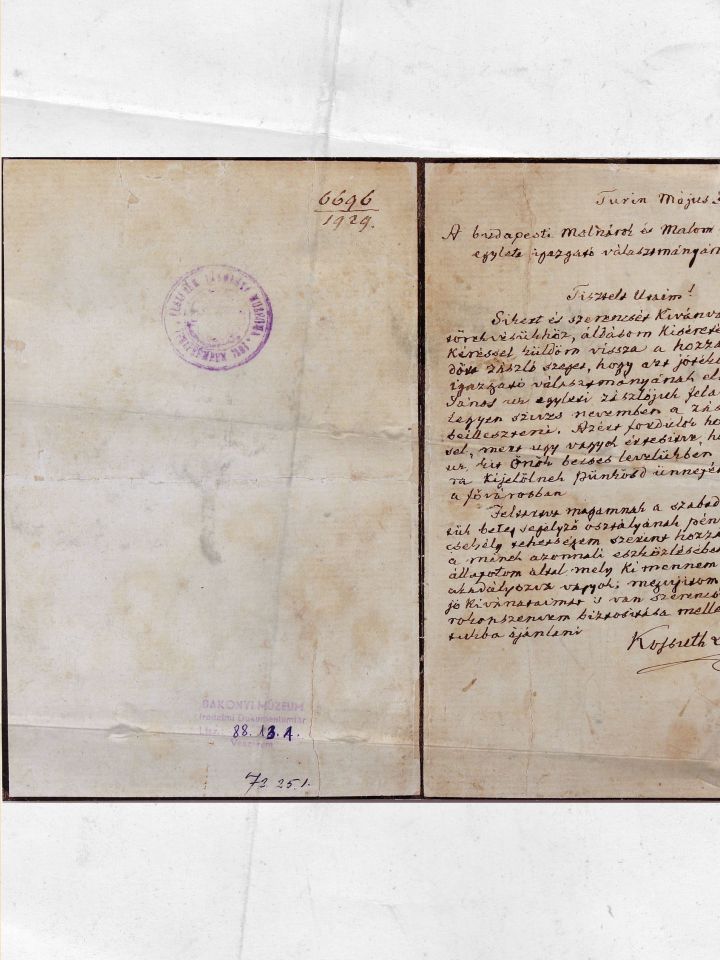 6696
1929.
BAKONYI MÚZEUM
Irodalmi Dokumentumtár
88. 13. 1.
Veszprém
72. 25. 1.
Turin Május
A budapesti Molnárok és Malom
egylete igazgató választmányán
Tisztelt Uraim!
Sikert és szerencsét Kiván
törekvésükhöz, áldásom Kiséret
Kéréssel küldöm vissza a hozzá
dött zászló szeget, hogy azt
igazgató választmányának el
János ur egyleti zászlójuk fela
legyen szives nevemben a zá
beilleszteni. Azért fordulok ho
sel, mert ugy vagyok értesitve, h
ur, kit Önök becses levelükben
ra Kijelölnek Pünkösd ünnepé
a fővárosban
magamnak a szabad
tük beteg segélyző osztályának pén
csekély tehetségem szerint hozzá
a minek azonnali eszközlésében
állapotom által mely Kimennem
akadályozva vagyok; megujitom
jó Kivánataimat is van szerencs
rokonszenvem biztositása melle
tukba ajánlani
Kossuth